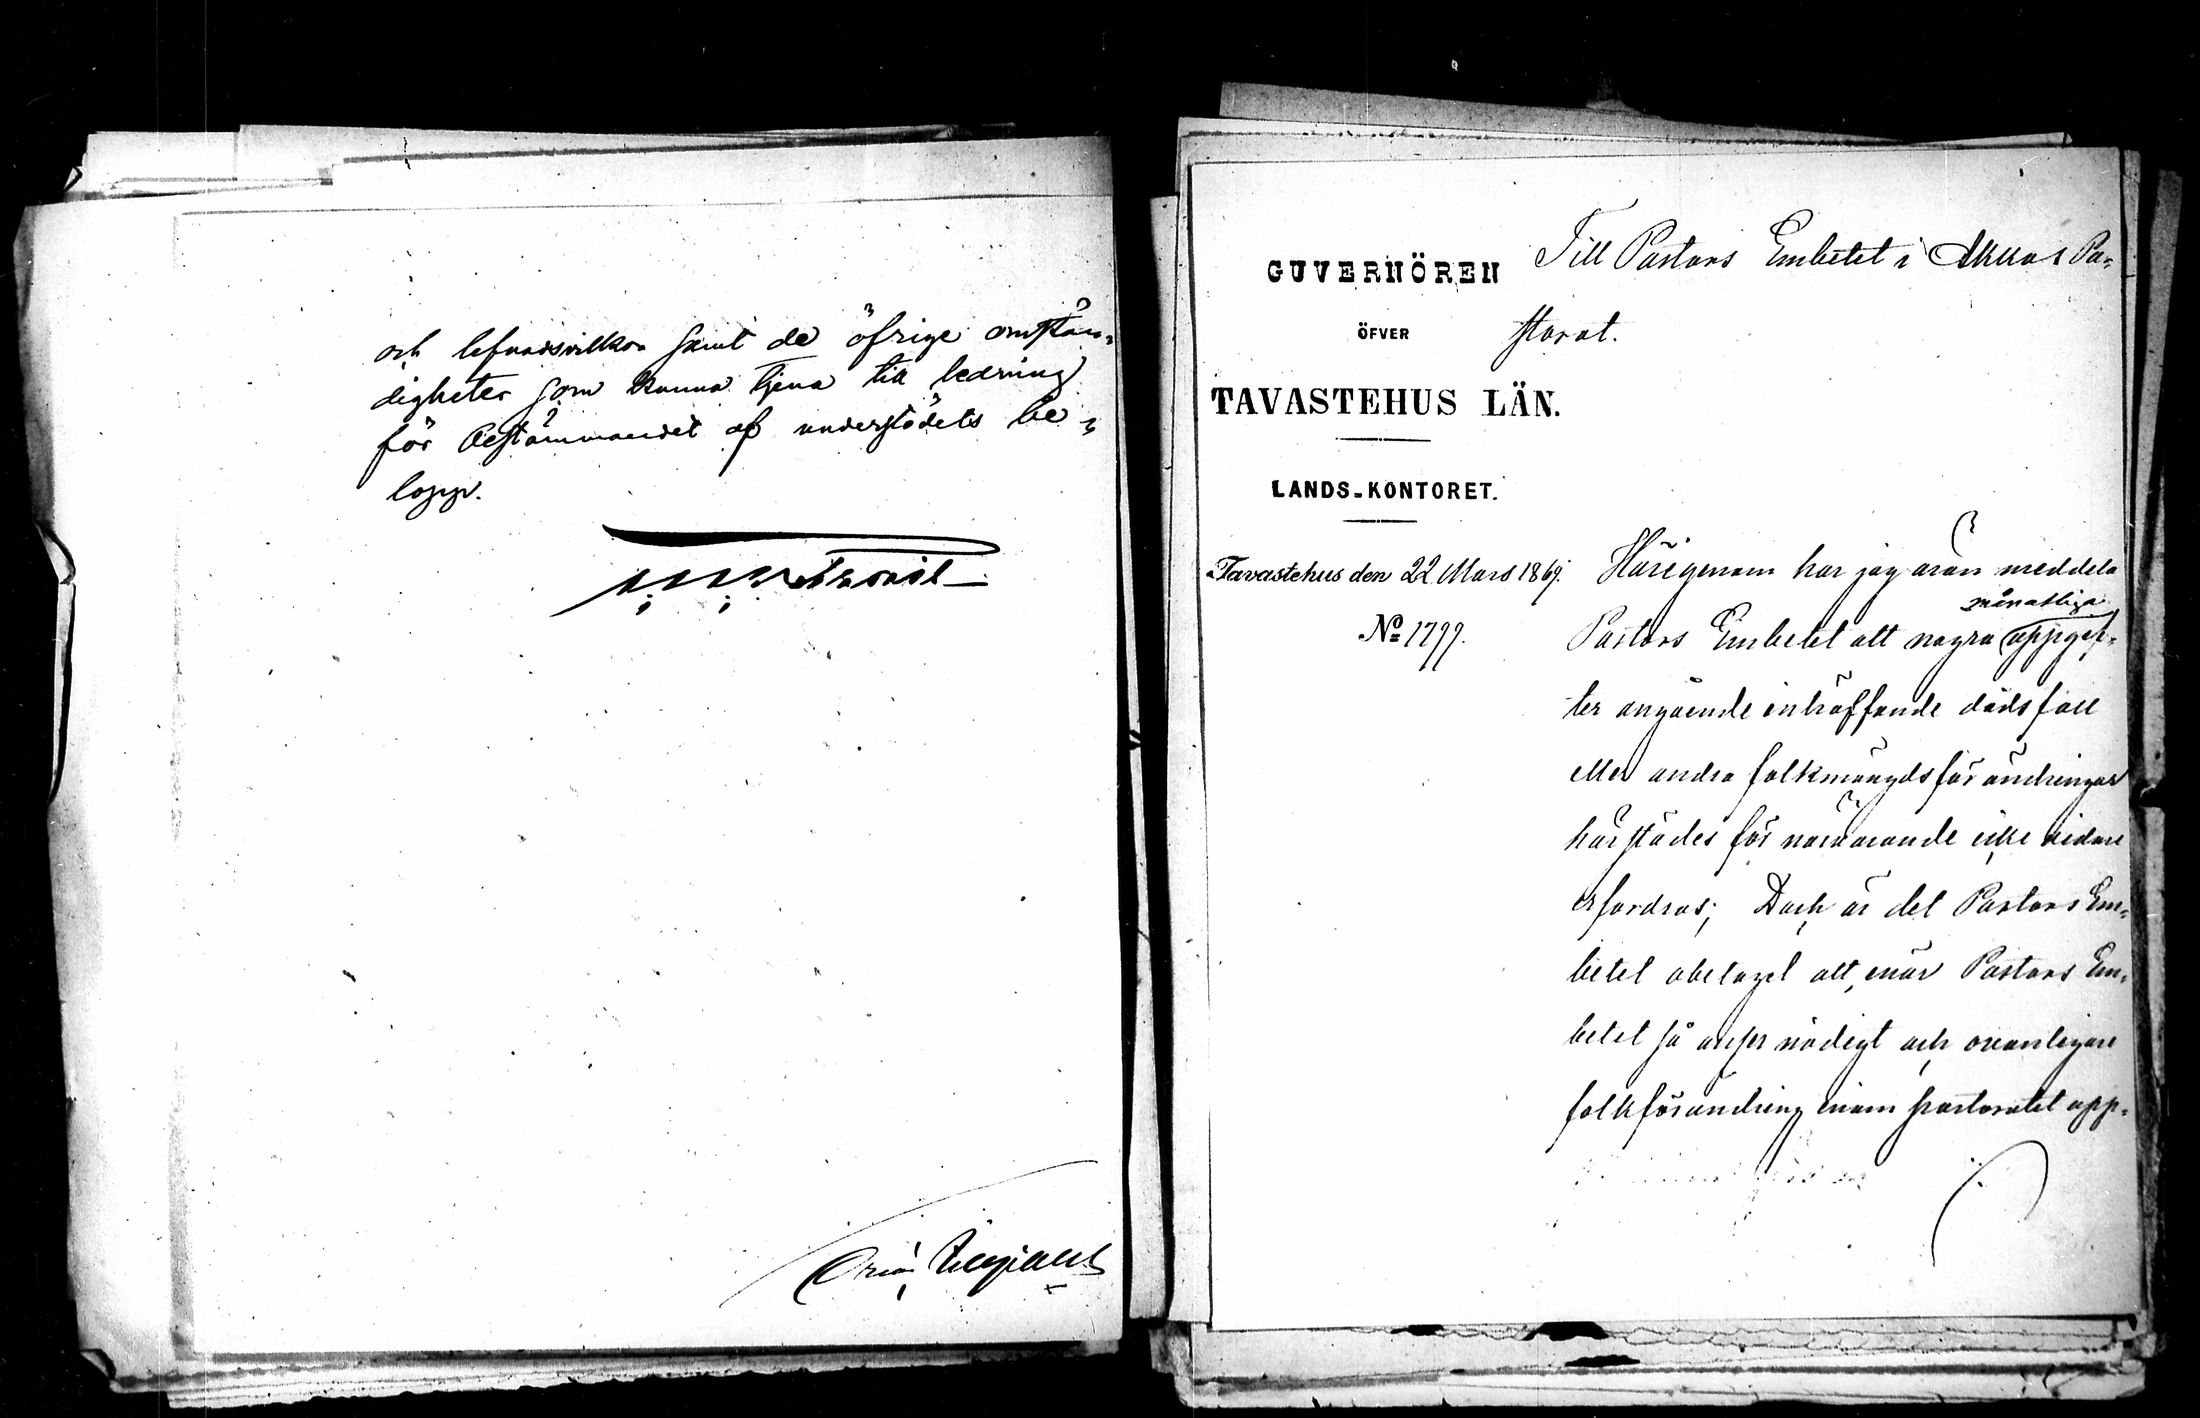 och lefnadsvilkor samt de öfrige omstän-
digheter som kunna tjena till ledning
för bestämmandet af understödets be-
lopp.
GUVERNÖREN
ÖFVER
TAVASTEHUS LÄN.
LANDS-KONTORET.
Tavastehus den 22 Mars 1869.
No 1799.
Till Pastors Embetet i Akkas Pa-
storat.
Härigenom har jag äran meddela
månatliga
Pastors Embetet att några uppgif-
ter angående inträffande dödsfall
eller andra folkmängdsförändringar
härstädes för närvarande icke vidare
erfordras; Dock är det Pastors Em-
betet obetaget att, när Pastors Em-
betet så anser nödigt och ovanligare
folkförändring inom pastoratet upp-